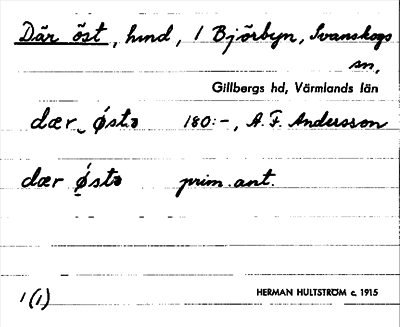 Där öst, hmd, 1 Björbyn, Svanskogs
sn,
Gillbergs hd, Värmlands län
dær ǿstə 180:-, A. F. Andersson
dær ǿstə prim. ant.
1(1) HERMAN HULTSTRÖM c. 1915